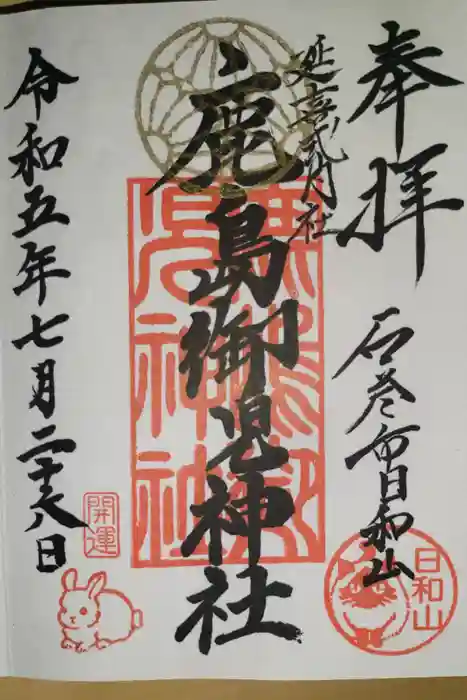 奉拝
石巻市日和山
日和山
延喜式内社
鹿島御児神社
令和五年七月二十八日
開運